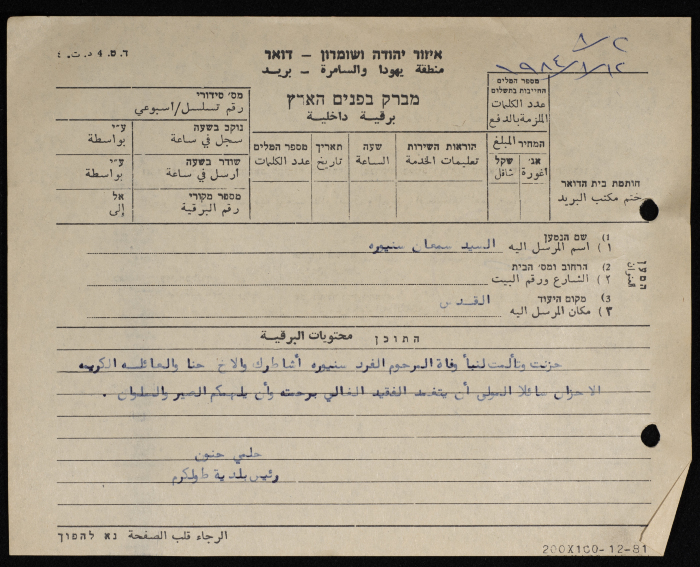 ד.ט. 4 د.ت. ٤
איזור יהודה ושומרון - דואר
منطقة يهودا والسامرة - بريد
מברק בפנים הארץ
برقية داخلية
٨/٢
١٩٨٤/١/١٢
מספר המלים
החייבות בתשלום
عدد الكلمات
الملزمة بالدفع
המחיר المبلغ
אג׳ שקל
اغورة شاقل
הוראות השירות
تعليمات الخدمة
שעה
الساعة
תאריך
تاريخ
מספר המלים
عدد الكلمات
מס׳ סידורי
رقم تسلسل/اسبوعي
נוקב בשעה ע״י
سجل في ساعة بواسطة
שודר בשעה ע״י
ارسل في ساعة بواسطة
מספר מקורי אל
رقم البرقية إلى
חותמת בית הדואר
ختم مكتب البريد
המען
العنوان
1) שם הנמען
١) اسم المرسل اليه السيد سمعان سنيوره
2) הרחוב ומס׳ הבית
٢) الشارع ورقم البيت
3) מקום היעוד
٣) مكان المرسل اليه القدس
התוכן محتويات البرقية
حزنت وتألمت لنبأ وفاة المرحوم الفرد سنيوره أشاطرك والاخ حنا والعائلة الكريمه
الاحزان سائلا المولى أن يتغمد الفقيد الغالي برحمته وأن يلهمكم الصبر والسلوان .
حلمي حنون
رئيس بلدية طولكرم
الرجاء قلب الصفحة נא להפוך
200X100-12-81